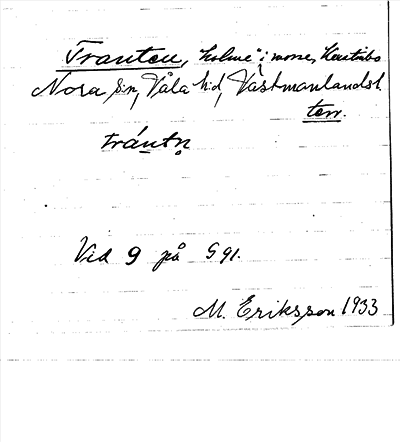 Tranten, "holme" i mosse, Kerstinbo
Nora sn, Våla hd, Västmanlandsl.
terr.
trántn̥
Vid 9 på G 91.
M. Eriksson 1933